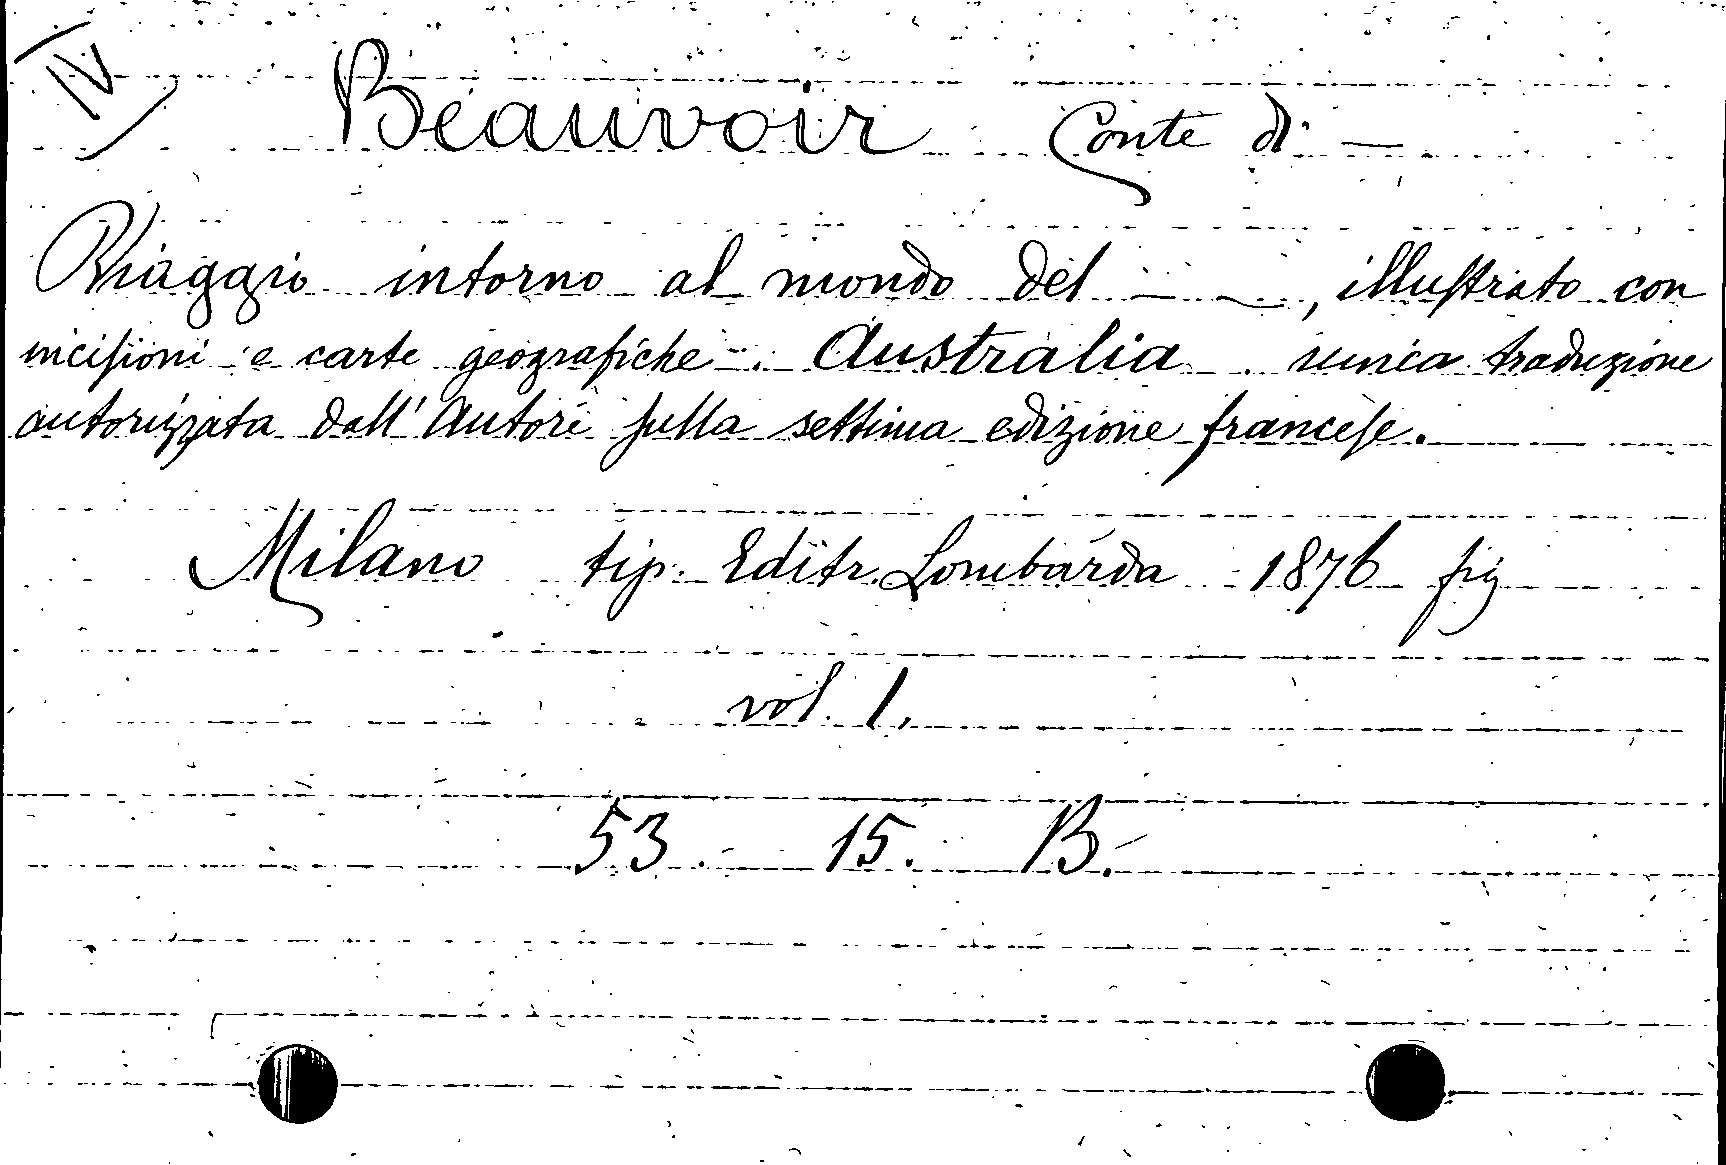 IV
Beauvoir Conte di —
Viaggio intorno al mondo del — —, illustrato con
incisioni e carte geografiche. Australia. unica traduzione
autorizzata dall'Autore sulla settima edizione francese.
Milano tip. Editr. Lombarda 1876 fig
vol. 1.
53. 15. B.